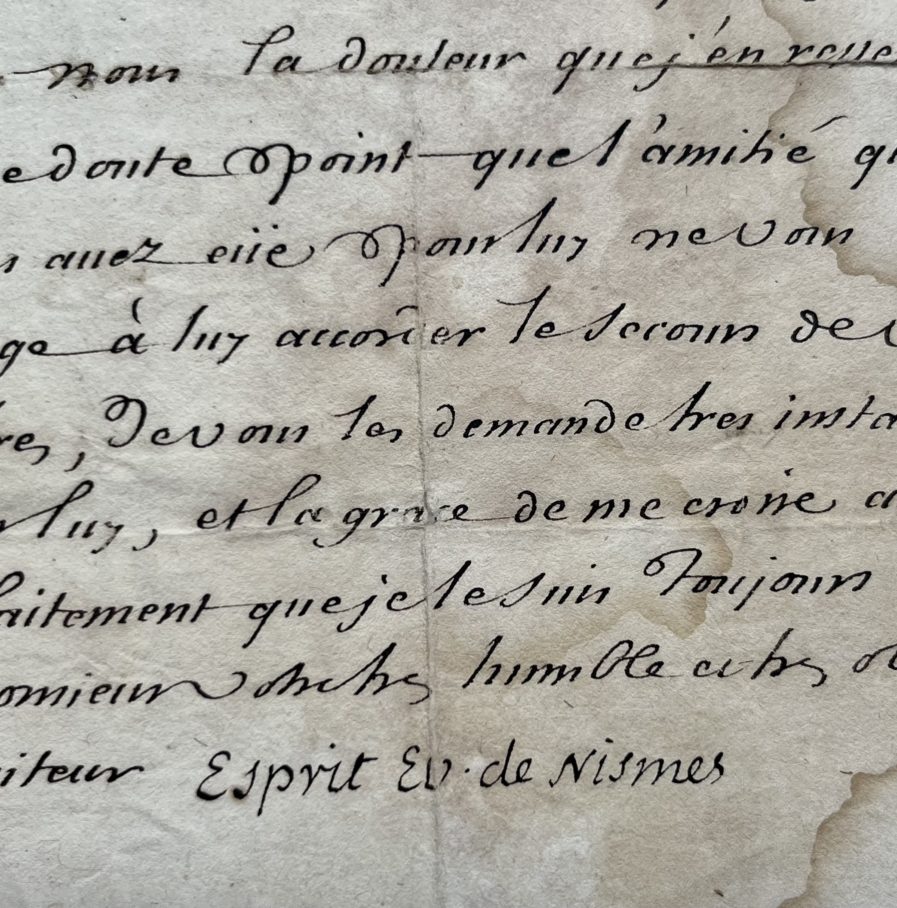 nous la douleur que j'en resse
e doute point que l'amitié qu
s auez eüe pour luy ne vous
ge à luy accorder le secours de v
res, Je vous les demande tres insta
r luy, et la grace de me croire a
faitement que je le suis Toujours
onsieur Votre tres humble et tres ob
iteur Esprit Ev. de Nismes